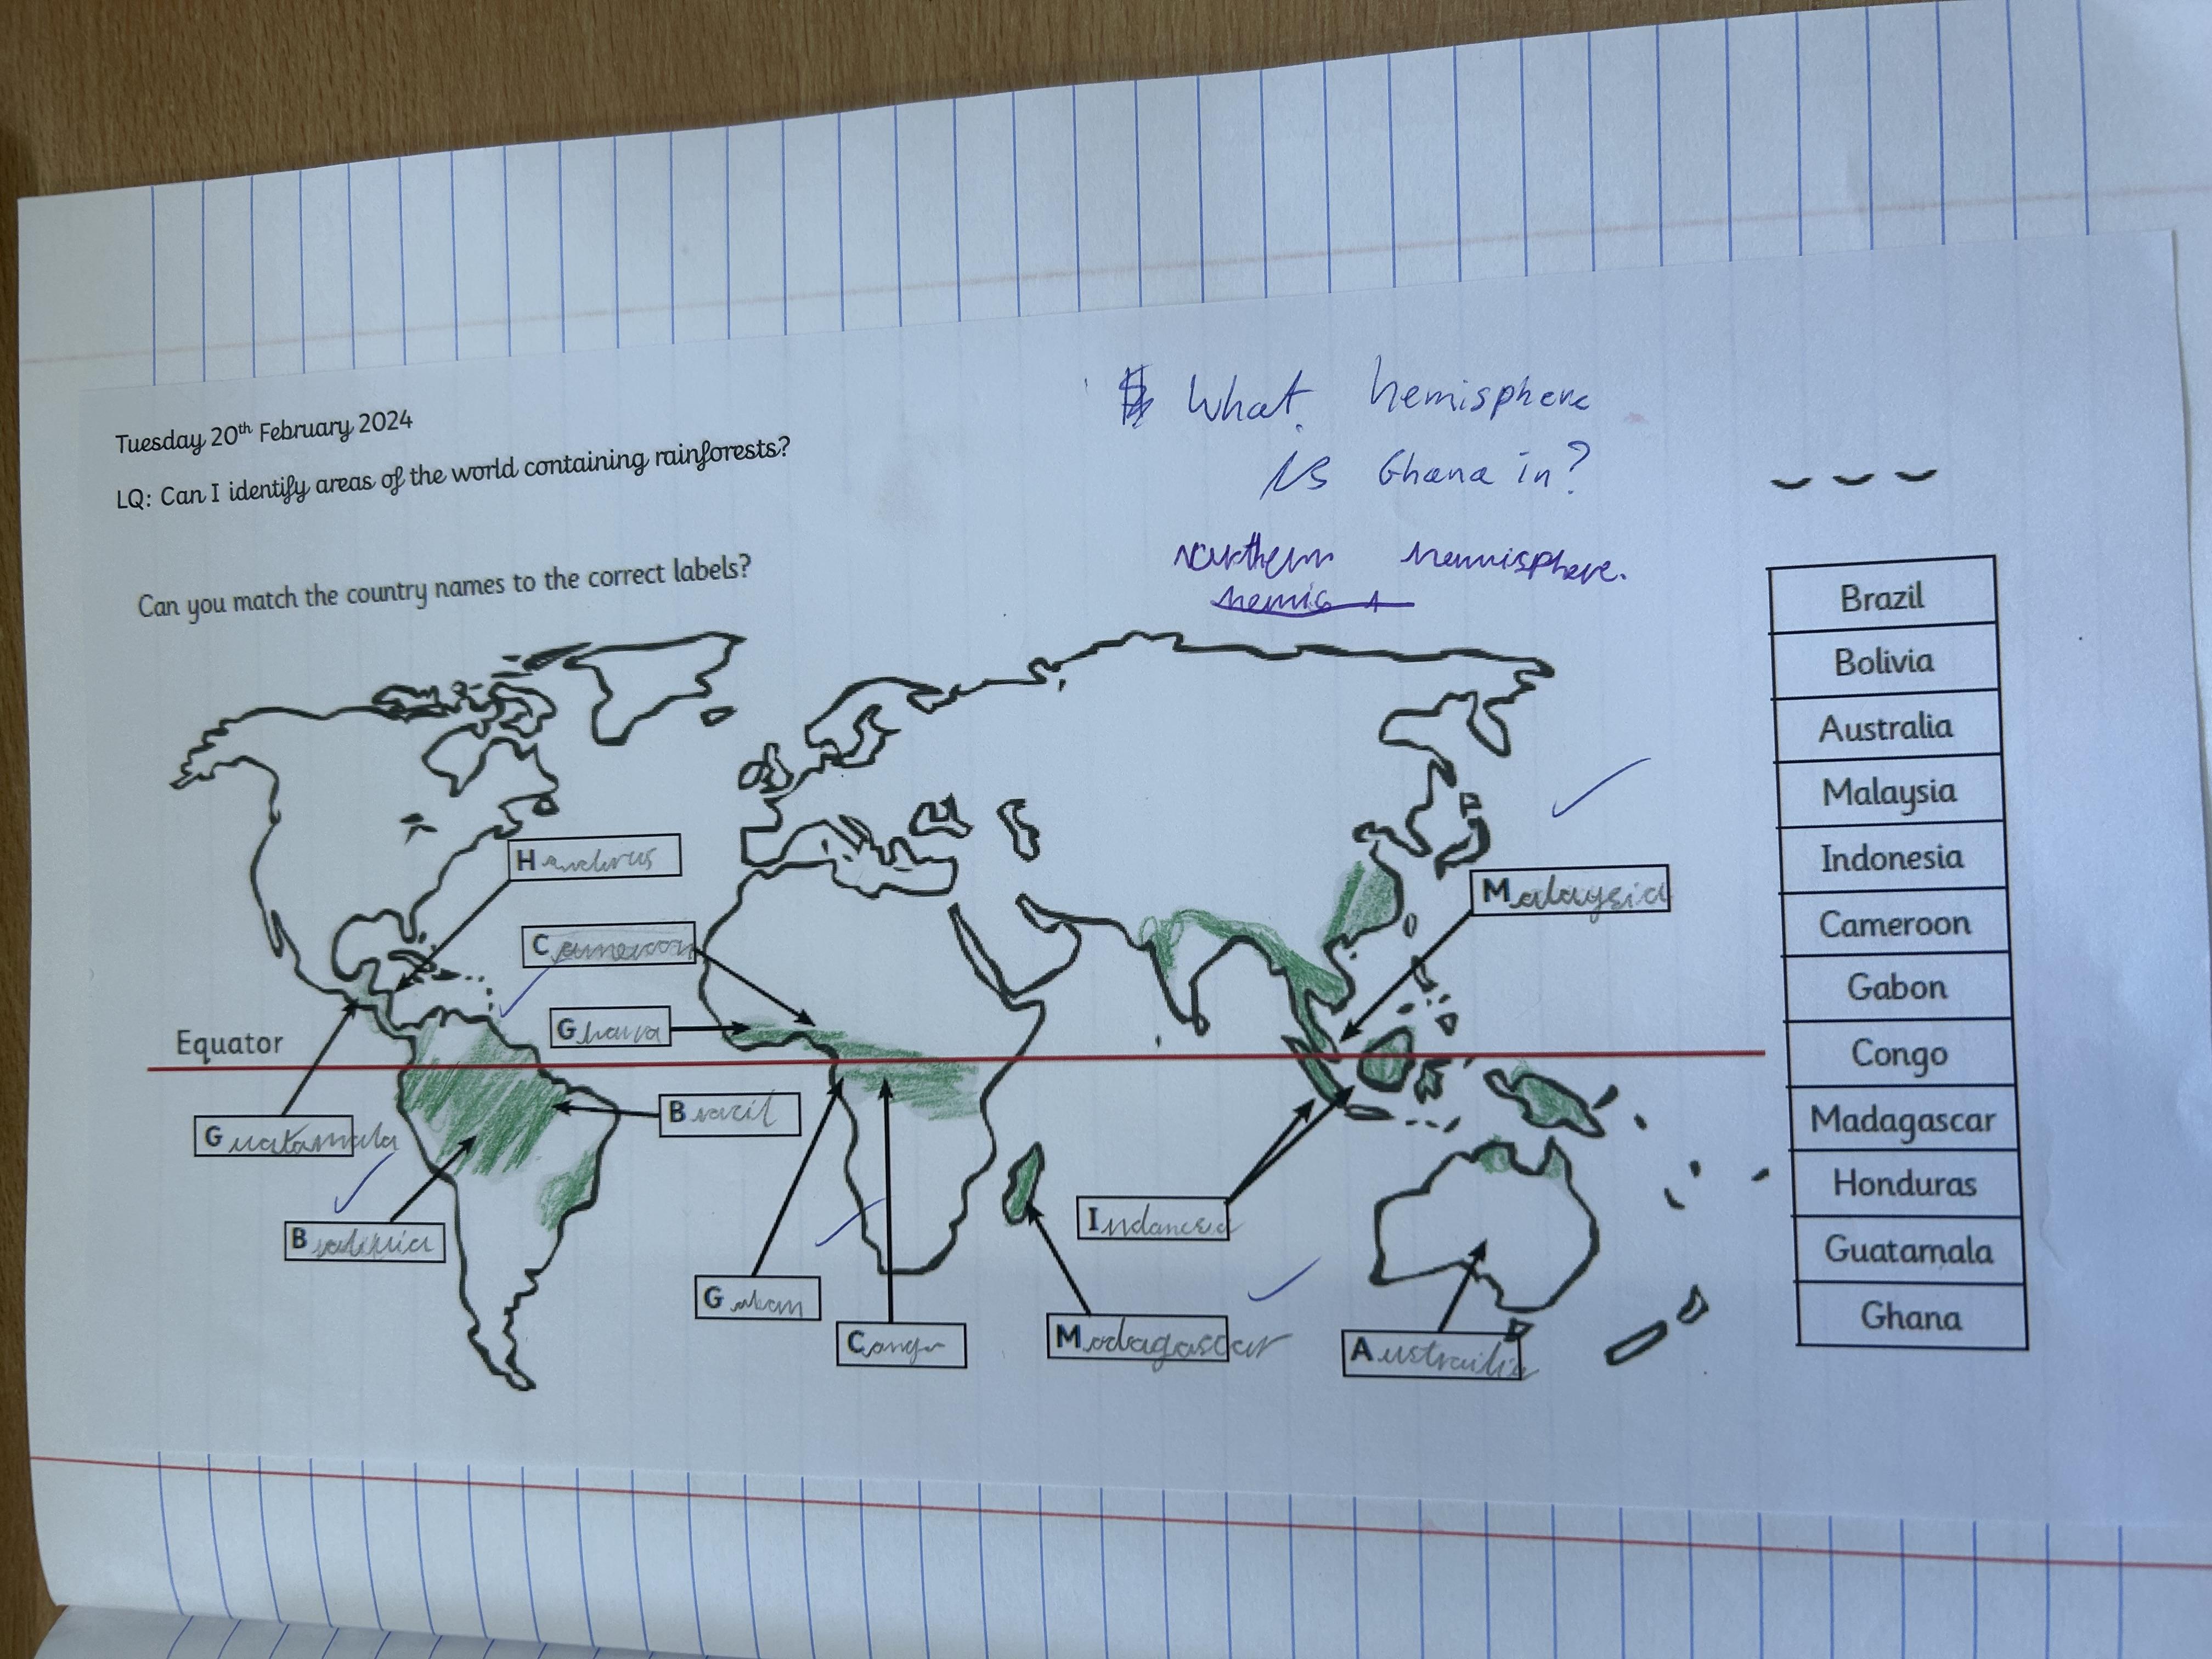 Tuesday 20th February 2024
LQ: Can I identify areas of the world containing rainforests?
What hemisphere
is Ghana in?
Northern hemisphere.
hemis
Can you match the country names to the correct labels?
Brazil
Bolivia
Australia
Malaysia
Indonesia
Cameroon
Gabon
Congo
Madagascar
Honduras
Guatamala
Ghana
Malaysia
Cameroon
Ghana
Equator
Brazil
Guatamala
Gabon
Congo
Madagascar
Austrailia